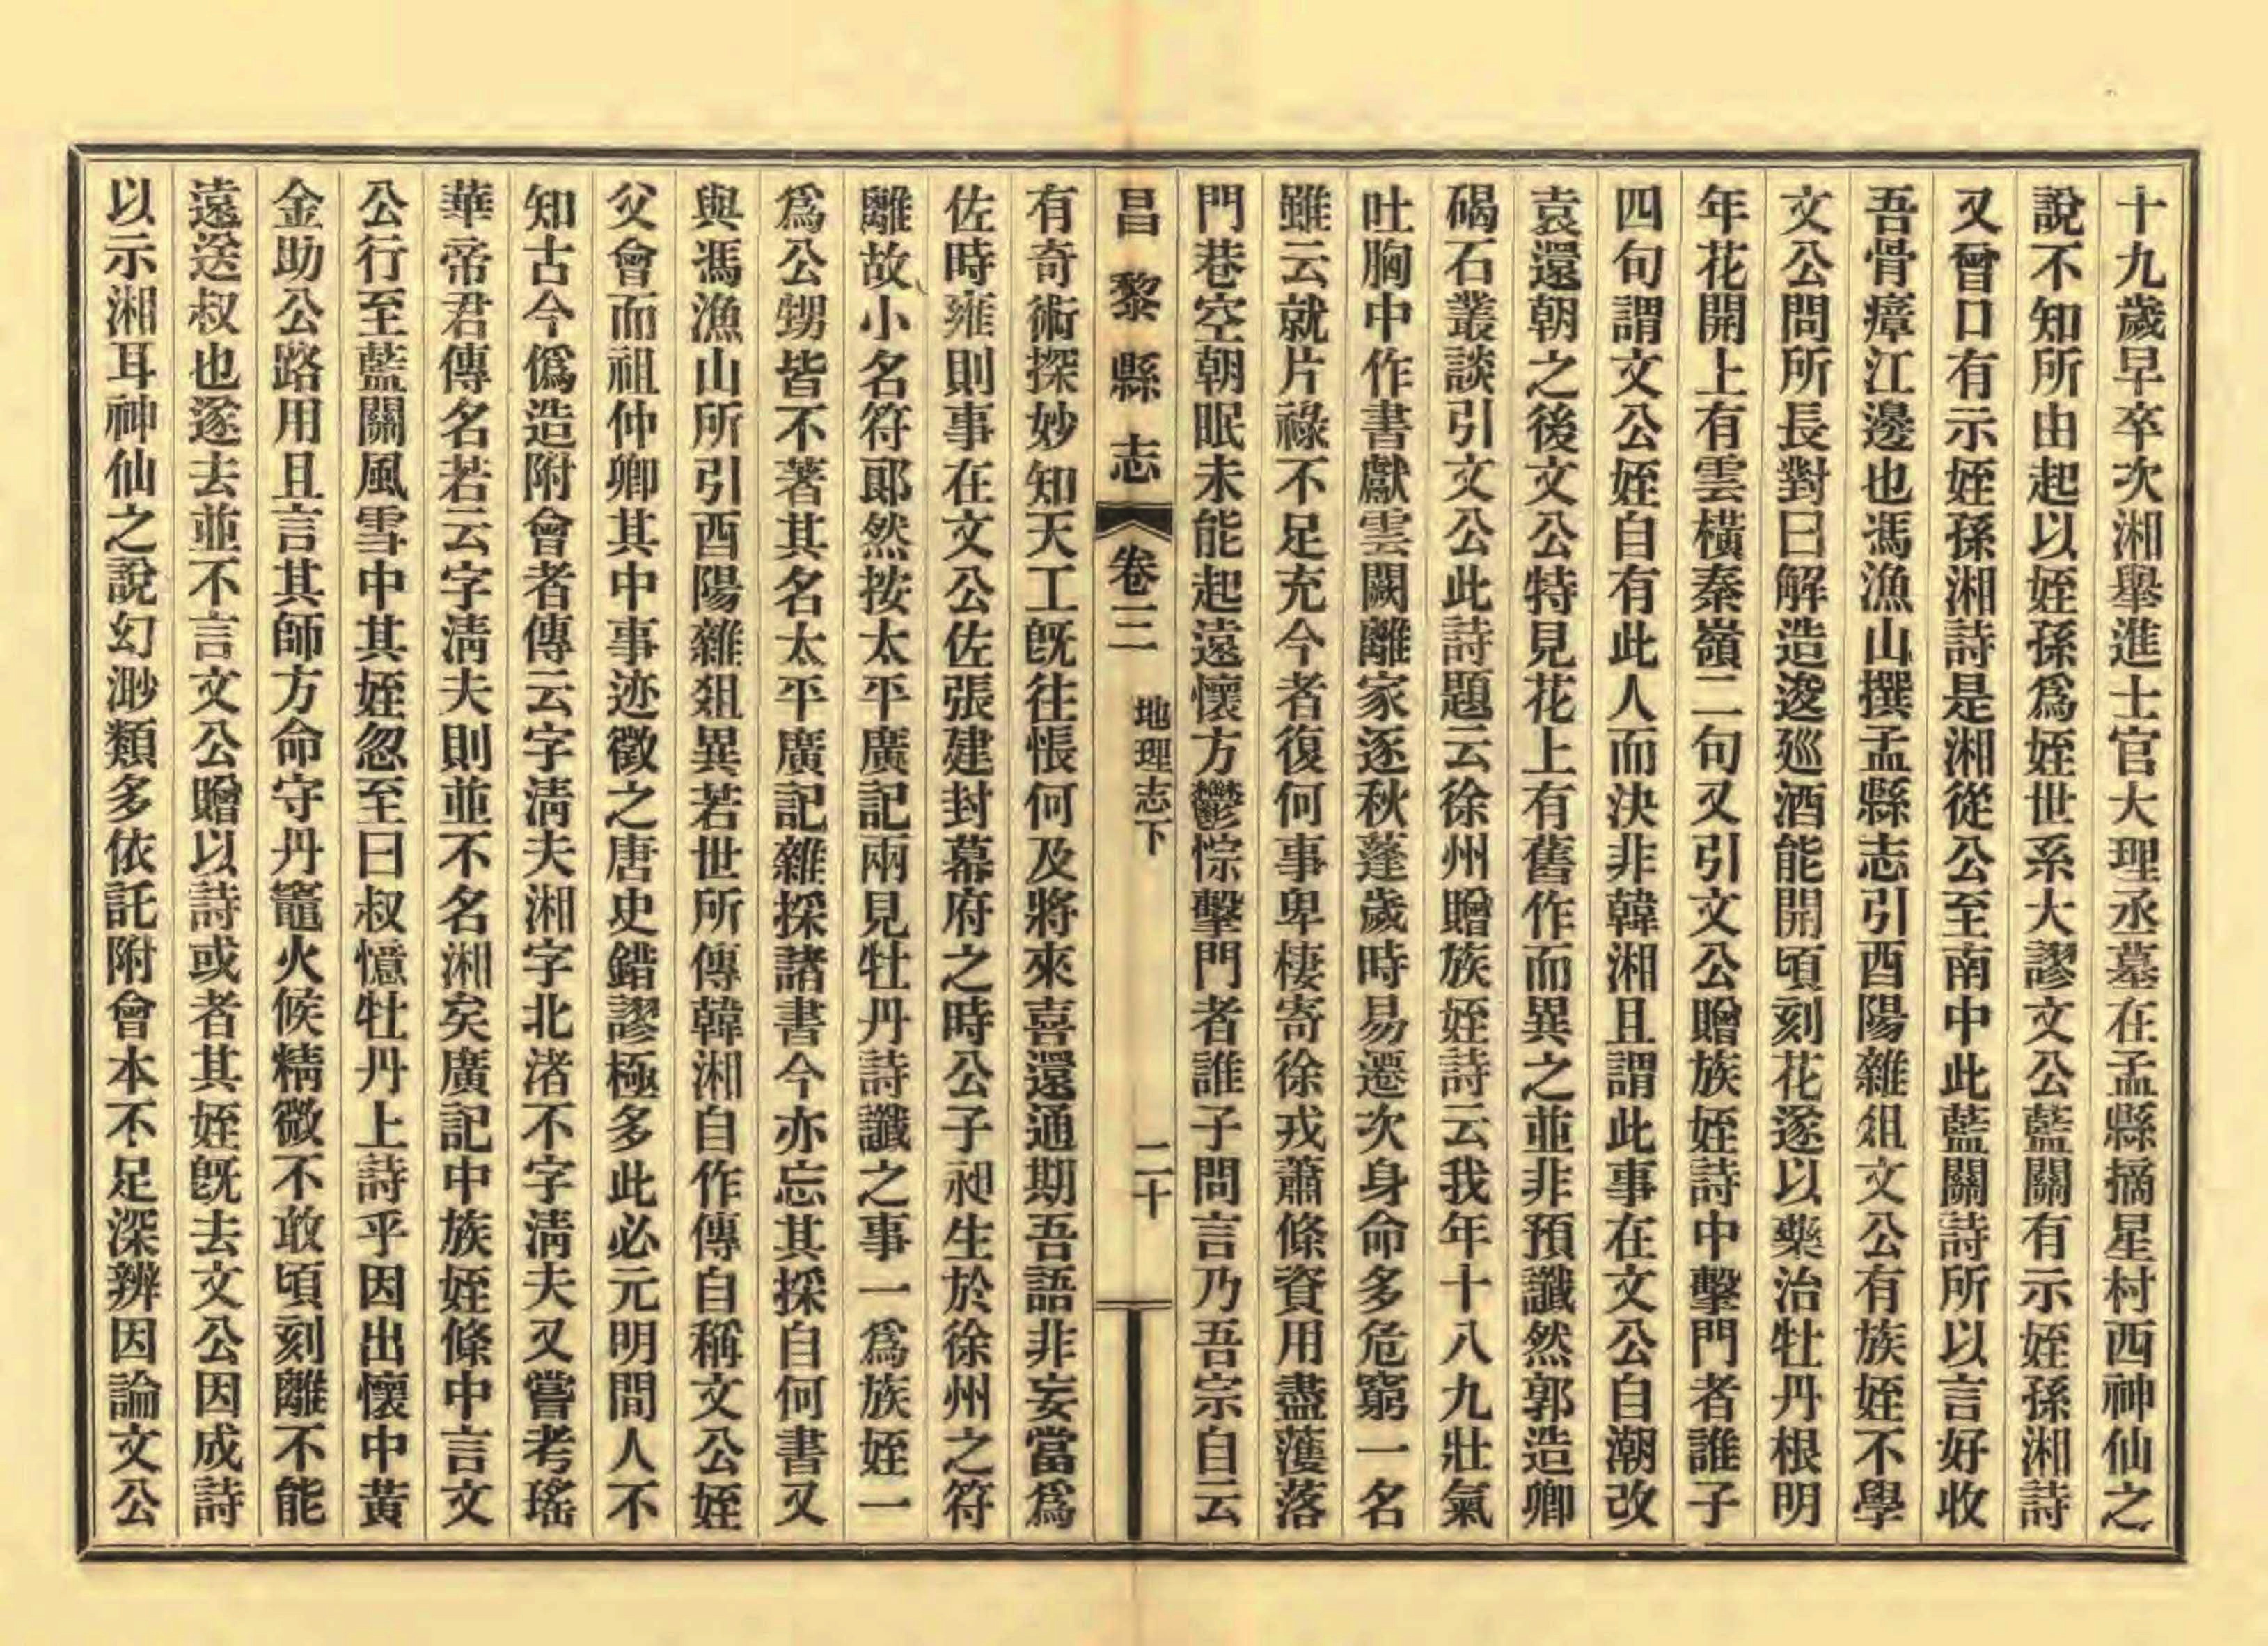 十九歲早卒次湘舉進士官大理丞墓在孟縣摘星村西神仙之
說不知所由起以姪孫爲姪世系大謬文公藍關有示姪孫湘詩
又曾口有示姪孫湘詩是湘從公至南中此藍關詩所以言好收
吾骨瘴江邊也馮漁山撰孟縣志引酉陽雜俎文公有族姪不學
文公問所長對曰解造逡巡酒能開頃刻花遂以藥治牡丹根明
年花開上有雲橫秦嶺二句又引文公贈族姪詩中擊門者誰子
四句謂文公姪自有此人而決非韓湘且謂此事在文公自潮改
袁還朝之後文公特見花上有舊作而異之並非預讖然郭造卿
碣石叢談引文公此詩題云徐州贈族姪詩云我年十八九壯氣
吐胸中作書獻雲闕離家逐秋蓬歲時易遷次身命多危窮一名
雖云就片祿不足充今者復何事卑棲寄徐戎蕭條資用盡濩落
門巷空朝眠未能起遠懷方鬱悰擊門者誰子問言乃吾宗自云
昌黎縣志 卷三 地理志下 二十
有奇術探妙知天工旣往悵何及將來喜還通期吾語非妄當爲
佐時雍則事在文公佐張建封幕府之時公子昶生於徐州之符
離故小名符郎然按太平廣記兩見牡丹詩讖之事一爲族姪一
爲公甥皆不著其名太平廣記雜採諸書今亦忘其採自何書又
與馮漁山所引酉陽雜俎異若世所傳韓湘自作傳自稱文公姪
父會而祖仲卿其中事迹徵之唐史錯謬極多此必元明間人不
知古今僞造附會者傳云字淸夫湘字北渚不字淸夫又嘗考瑤
華帝君傳名若云字淸夫則並不名湘矣廣記中族姪條中言文
公行至藍關風雪中其姪忽至曰叔憶牡丹上詩乎因出懷中黃
金助公路用且言其師方命守丹竈火候精微不敢頃刻離不能
遠送叔也遂去並不言文公贈以詩或者其姪旣去文公因成詩
以示湘耳神仙之說幻渺類多依託附會本不足深辨因論文公